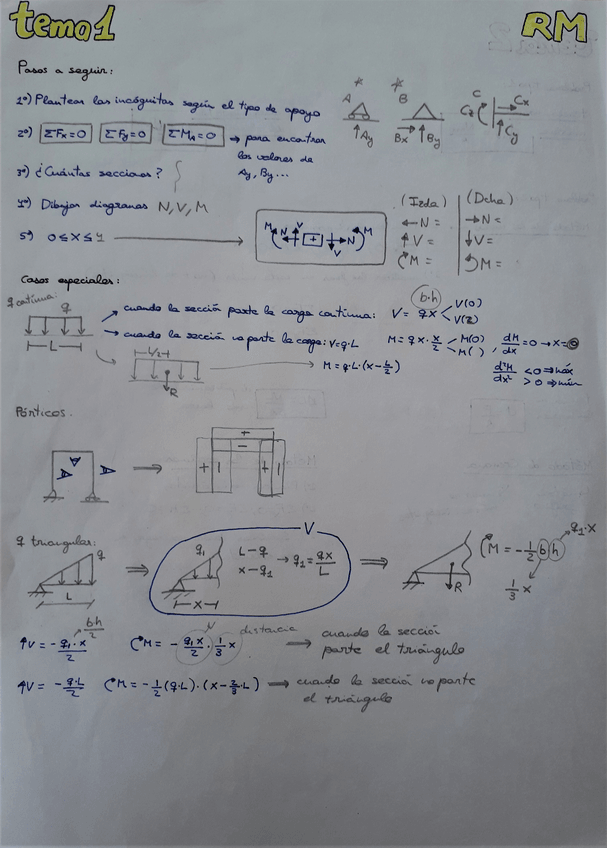 tema 1
RM
Pasos a seguir:
1º) Plantear las incógnitas según el tipo de apoyo
A
Ay
B
Bx
By
C
Cz
Cx
Cy
2º) ΣFx=0 ΣFy=0 ΣMA=0 → para encontrar
los valores de
Ay, By...
3º) ¿Cuántas secciones?
4º) Dibujar diagramas N, V, M
5º) 0 ≤ x ≤ 4
M N V + N V M
(Izda) (Dcha)
← N = → N =
↑ V = ↓ V =
M = M =
Casos especiales:
q continua.
q
L
cuando la sección parte la carga continua: V = qx V(0)
V(2)
b·h
M = qx · x/2 M(0)
M( ), dM/dx = 0 → x =
d²M/dx² < 0 ⇒ máx
> 0 ⇒ mín
cuando la sección no parte la carga: V = q·L
L/2
R
M = q·L·(x - L/2)
Pórticos.
+
-
+
+
q triangular:
q
L
V
q1
x
L - q
x - q1
→ q1 = qx/L
R
M = -1/2 b h
q1·x
1/3 x
↑V = - q1·x/2
bh/2
M = - q1 x/2 · 1/3 x
V
distancia
⇒ cuando la sección
parte el triángulo
↑V = - q·L/2 M = -1/2 (q·L)·(x - 2/3·L) ⇒ cuando la sección no parte
el triángulo